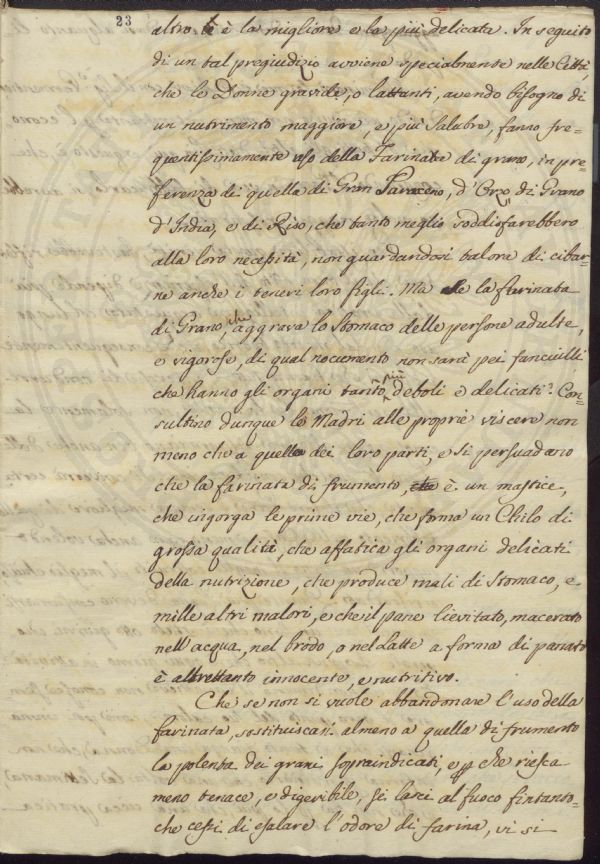 23
altro è la migliore e la più delicata. In seguito
di un tal pregiudizio avviene specialmente nelle Città,
che le Donne gravide, o lattanti, avendo bisogno di
un nutrimento maggiore, e più salubre, fanno fre=
quentissimamente uso della Farinata di grano, in pre=
ferenza di quella di Gran Saraceno, d'Orzo, di Grano
d'India, e di Riso, che tanto meglio soddisfarebbero
alla loro necessità, non guardandosi talora di cibar=
ne anche i teneri loro figli. Ma se la farinata
di Grano, che aggrava lo stomaco delle persone adulte,
e vigorose, di qual nocumento non sarà pei fanciulli
che hanno gli organi tanto più deboli e delicati? Con=
sultino dunque le Madri alle proprie viscere non
meno che a quelle dei loro parti, e si persuadano
che la farinata di frumento, è un mastice,
che ingorga le prime vie, che forma un Chilo di
grossa qualità, che affatica gli organi delicati
della nutrizione, che produce mali di stomaco, e
mille altri malori, e che il pane lievitato, macerato
nell'acqua, nel brodo, o nel latte a forma di panata
è altrettanto innocente, e nutritivo.
Che se non si vuole abbandonare l'uso della
farinata, sostituiscasi almeno a quella di frumento
la polenta dei grani sopraindicati, e che riesca
meno tenace, e digeribile, si lasci al fuoco fintanto=
che cessi di esalare l'odore di farina, vi si